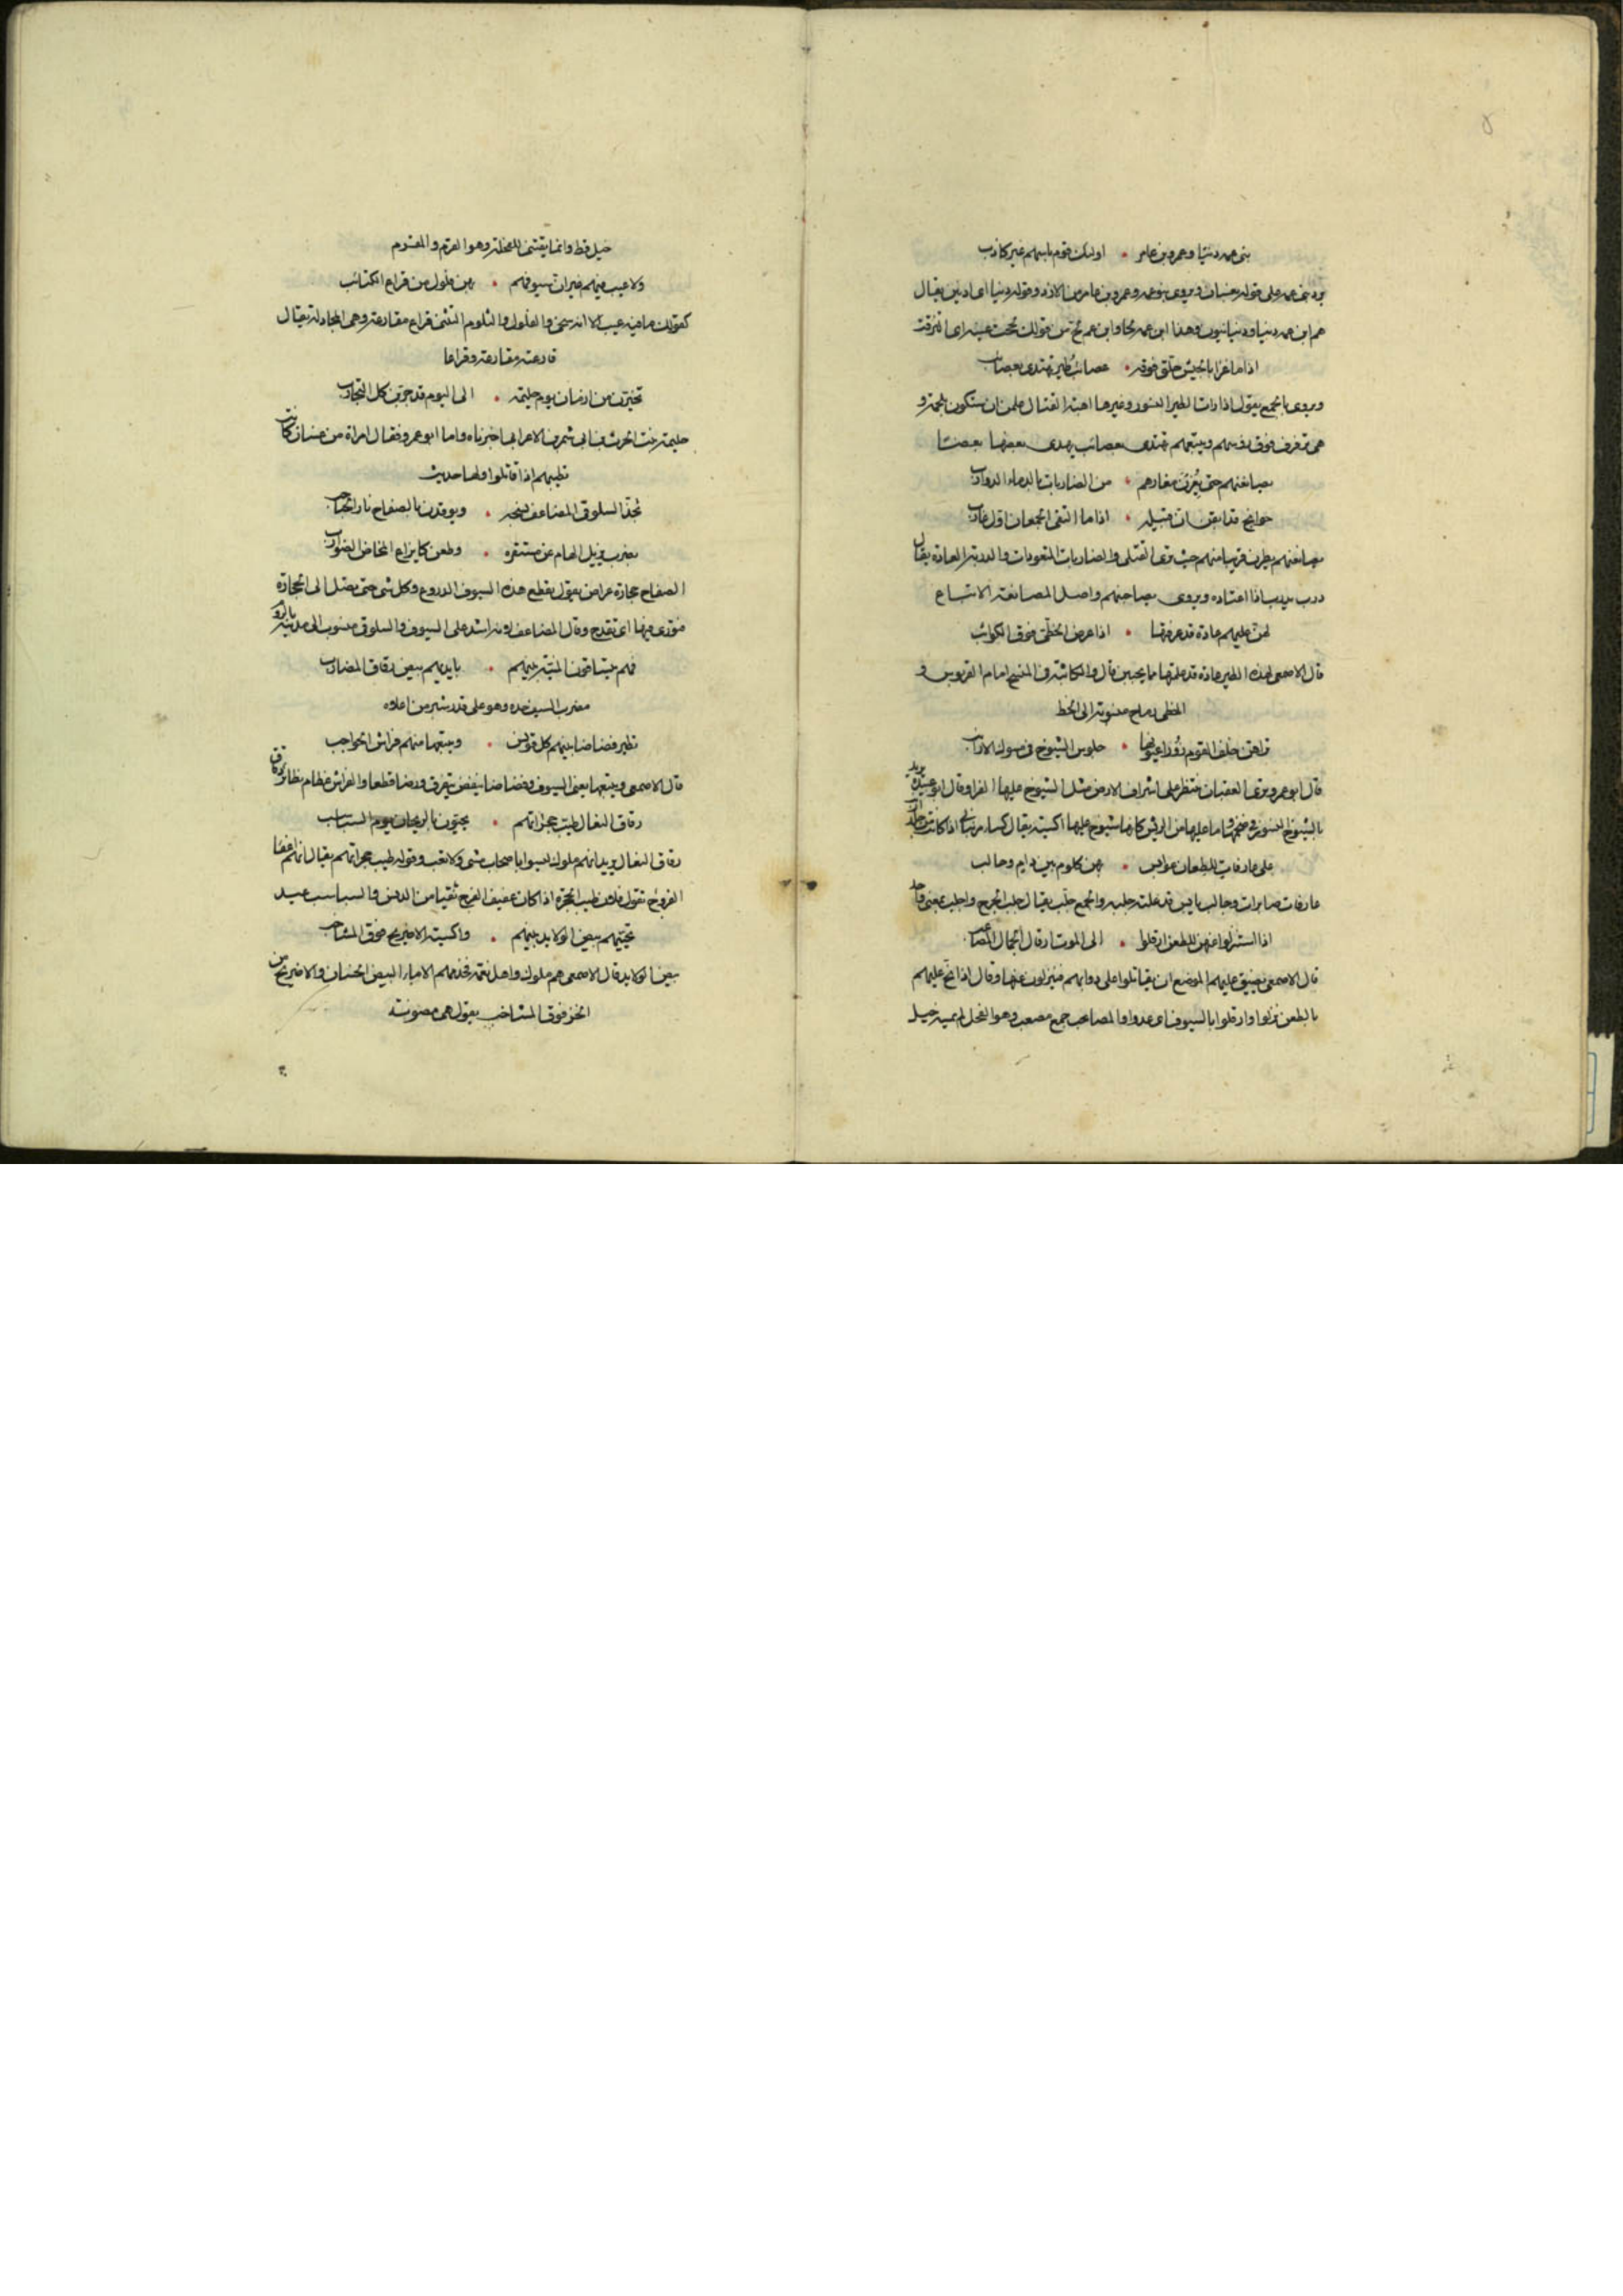 بنى عمه دنيا وعمرو بن عامر • اولئك قوم باسهم غير كاذب
يرد بنى عمه على قوله غسان ويروى بنو عمه وعمرو بن عامر من الازد وقوله دنيا اى ادنين يقال
هم ابن عمه دنيا ودنيا نيون وهذا ابن عمه لحا وابن عم لح من قولك لححت عينه اى التزقت
اذا ما غزا بالجيش حلق فوقه • عصائب طير تهتدى بعصائب
ويروى بالجمع يقول اذا رات الطير النسور وغيرها اهبة القتال علمن ان ستكون ملحمة و
هى ترفرف فوق رؤسهم ويتبعهم تهتدى بعصائب يهدى بعضها بعضا
يصانعنهم حتى يغرن مغارهم • من الضاريات بالدماء الدوارب
جوانح قد ايقن ان قبيله • اذا ما التقى الجمعان اول غالب
يصانعنهم يطرن قريبا منهم حيث ترى القتلى والضاريات المتعودات والدربة العادة يقال
درب يدرب اذا اعتاده ويروى يصاحبنهم واصل المصانعة الاتساع
لهن عليهم عادة قد عرفنها • اذا عرض الخطى فوق الكواثب
قال الاصمعى لهذه الطير عادة قد علمتها مما يحبين قال والكاثبة فى المنسج امام القربوس و
الخطى رماح منسوبة الى الخط
تراهن خلف القوم زورا عيونها • جلوس الشيوخ فى مسوك الارانب
قال ابو عمرو ترى العقبان تنتظر على اشراف الارض مثل الشيوخ عليها الفرا وقال ابو عبيدة يريد
بالشيوخ النسور وما عليها من الريش كانها شيوخ عليها اكسية يقال كساء مرنبانى اذا كان من جلد
على عارفات للطعان عوابس • بهن كلوم بين دام وجالب
عارفات صابرات وجالب يابس قد علته جلبة والجمع جلب يقال جلب الجرح واجلب بمعنى واحد
اذا استنزلوا عنهن للطعن ارقلوا • الى الموت ارقال الجمال المصاعب
قال الاصمعى يضيق عليهم الموضع ان يقاتلوا على دوابهم فينزلون عنها وقال اذا الح عليهم
بالطعن نزلوا وارقلوا بالسيوف اى عدوا والمصاعب جمع مصعب وهو الفحل لم يمسه حبل
حبل قط وانما يقتنى للفحلة وهو القرم والمقرم
ولا عيب فيهم غير ان سيوفهم • بهن فلول من قراع الكتائب
كقولك ما فيه عيب الا انه سخى والفلول والثلوم التثنى قراع مقارعة وهى المجادلة يقال
قارعته مقارعة وقراعا
تخيرن من ازمان يوم حليمة • الى اليوم قد جربن كل التجارب
حليمة بنت الحرث بن ابى شمر بن الاعرابى اخبرناه واما ابو عمرو فقال امراة من غسان كانت
تطيبهم اذا قاتلوا ولها حديث
تجذ السلوقى المضاعف نسجه • ويوقدن بالصفاح نار الحباحب
بضرب يزيل الهام عن مستقره • وطعن كايزاع المخاض الضوارب
الصفاح حجارة عراض يقول يقطع هذه السيوف الدروع وكل شى حتى تصل الى الحجارة
فتورى فيها اى تقدح وقال المضاعف لانه اشد على السيوف والسلوقى منسوب الى مدينة بالروم
فهم يتساقون المنية بينهم • بايديهم بيض رقاق المضارب
مضرب السيف حده وهو على قدر شبر من اعلاه
تطير فضاضا بينهم كل قونس • ويتبعها منهم فراش الحواجب
قال الاصمعى ويتبعها يعنى السيوف وفضاضا ينفض يتفرق ورضا قطعا والفراش عظام رقاق
رقاق النعال طيب حجزاتهم • يحيون بالريحان يوم السباسب
رقاق النعال يريد انهم ملوك ليسوا باصحاب مشى ولا تعب وقوله طيب حجزاتهم يقال انهم اعفا
الفروج تقول فلان طيب الحجزة اذا كان عفيف الفرج نقيا من الدنس والسباسب عيد
تحييهم بيض الولايد بينهم • واكسية الاضريج فوق المشاجب
بيض الولايد قال الاصمعى هم ملوك واهل نعمة تخدمهم الاماء البيض الحسان والاضريج من
الخز فوق المشاجب يقول هى مصونة